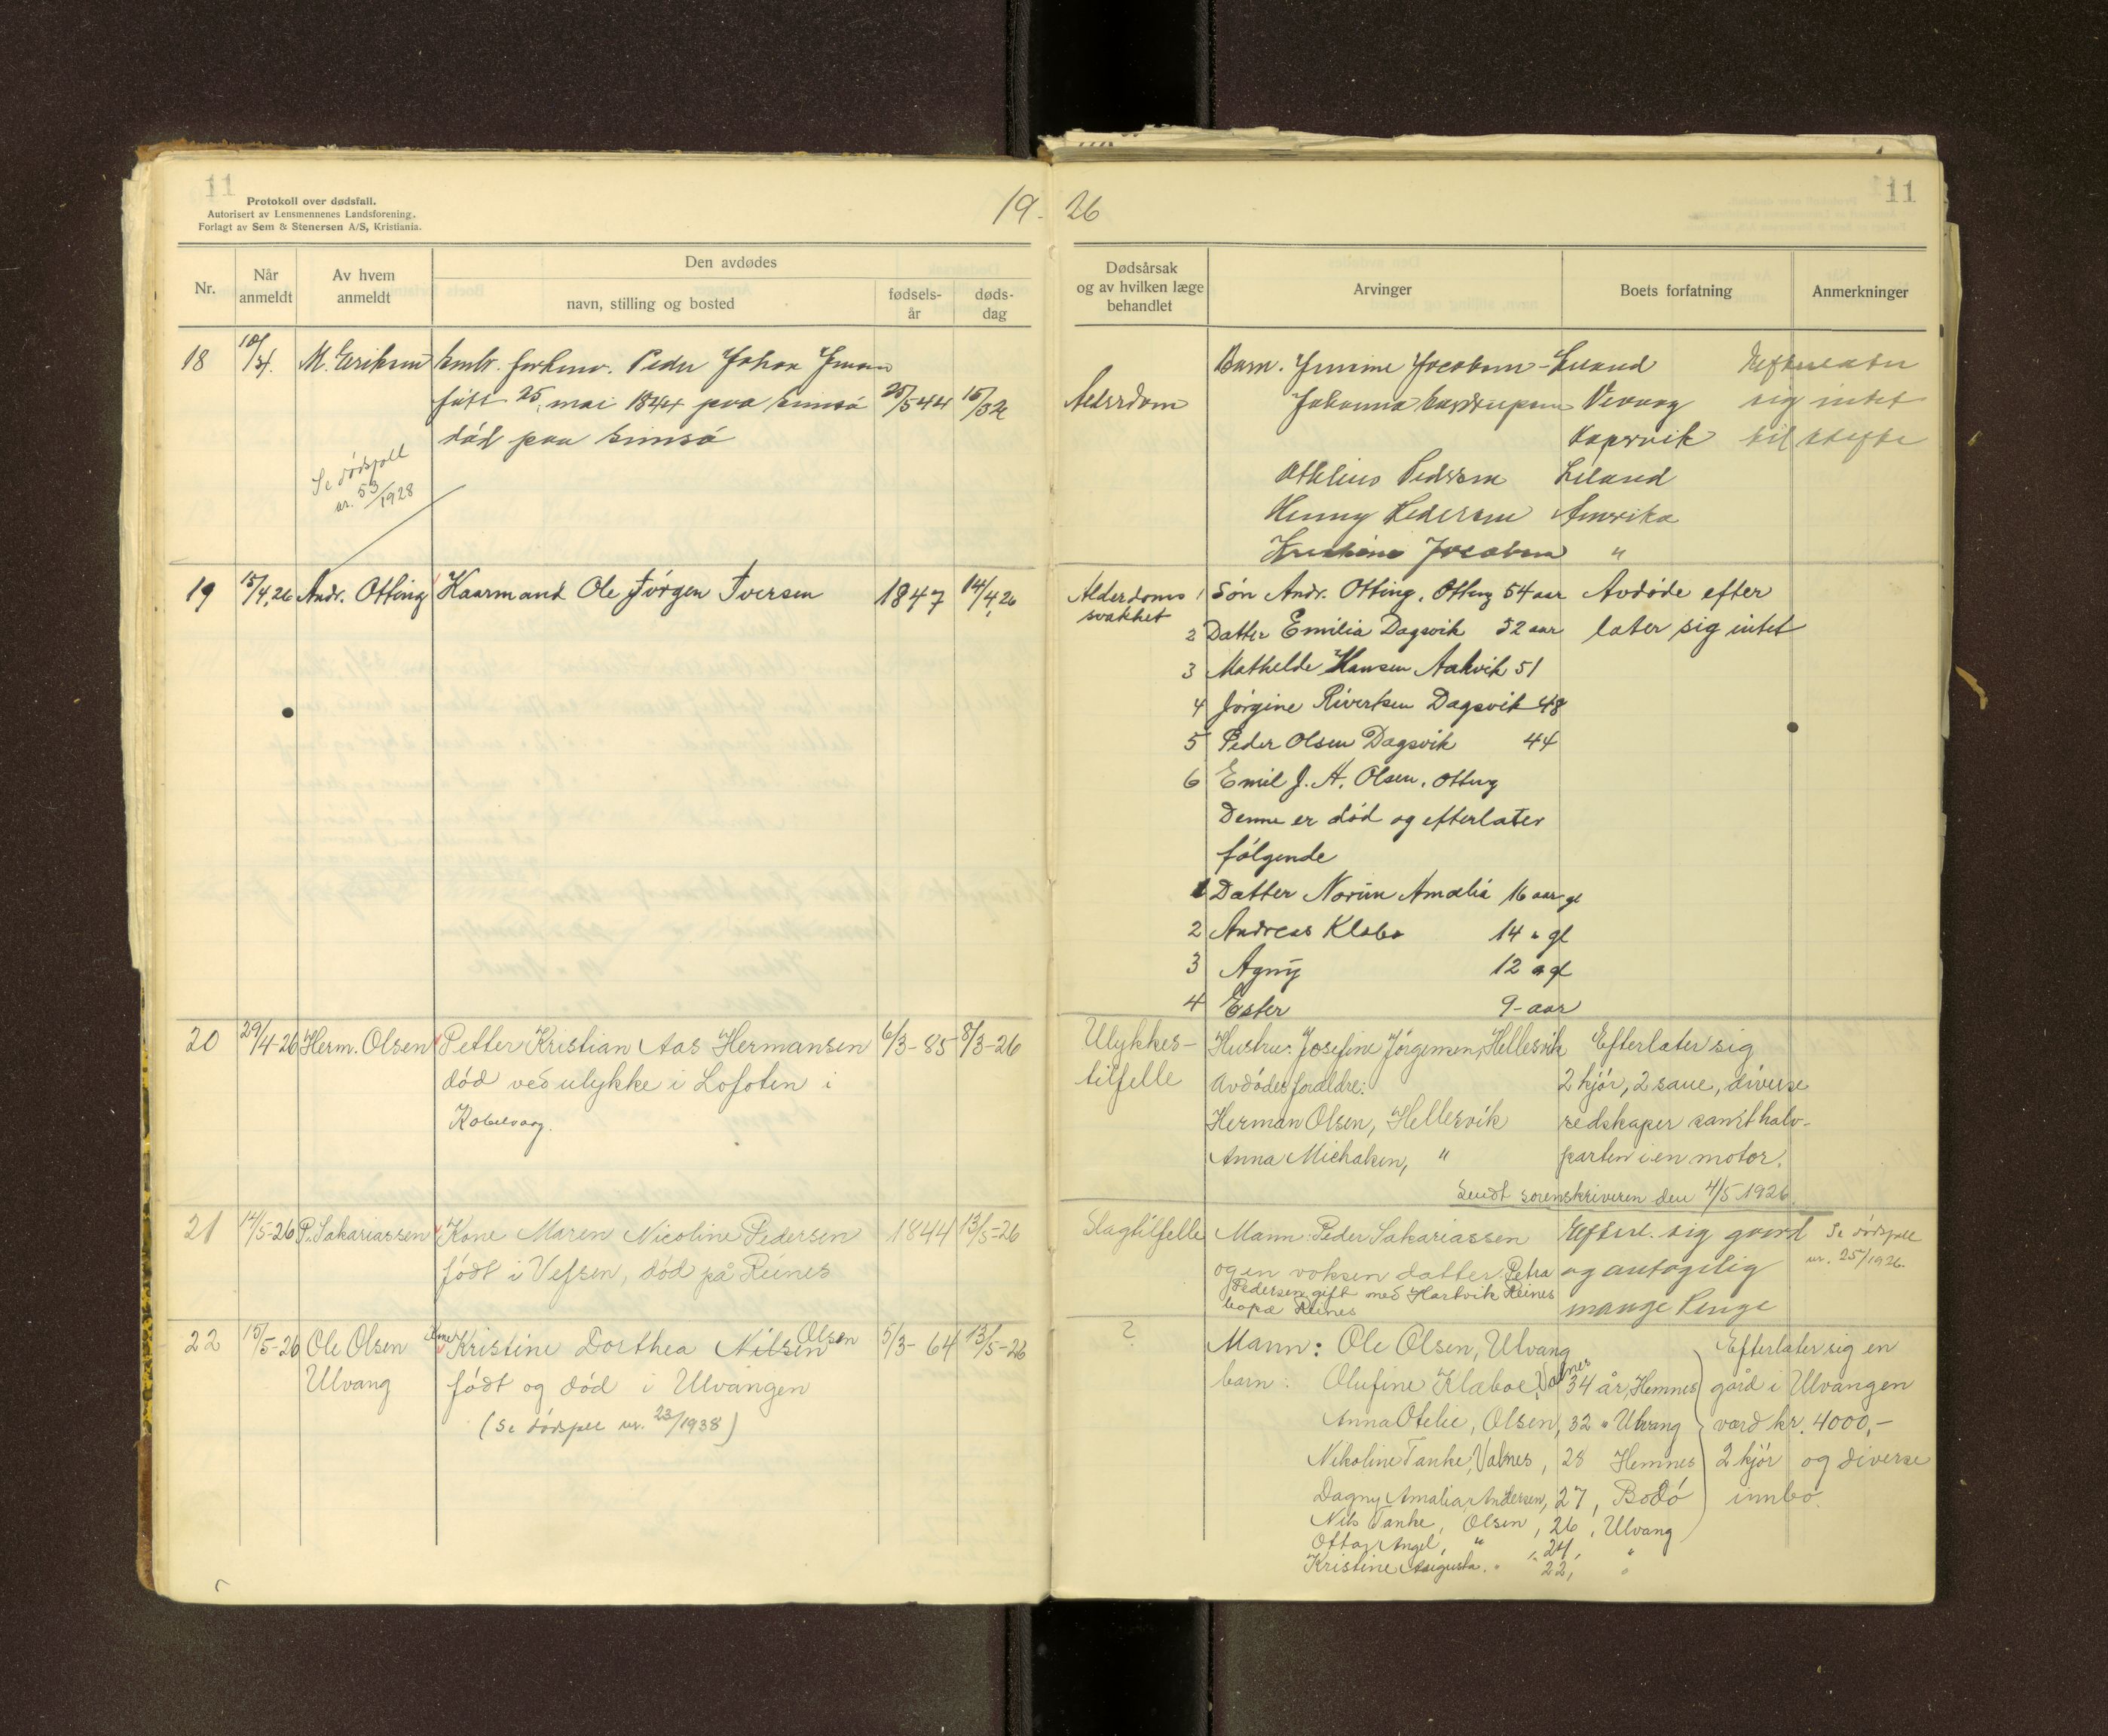 11
Protokoll over dødsfall.
Autorisert av Lensmennenes Landsforening.
Forlagt av Sem & Stenersen A/S, Kristiania.
19-26
11
Nr.
Når anmeldt
Av hvem anmeldt
Den avdødes
navn, stilling og bosted
fødsels-år
døds-dag
Dødsårsak og av hvilken læge behandlet
Arvinger
Boets forfatning
Anmerkninger
18 M. Eriksen Peder Johan
født 25 mai 1844 paa 25/5 44
død paa
Se dødsfall
nr. 53/1928
Alderdom
Barn. Jocobsen - Leland
Johanna
Leland
Henny Pedersen Amerika
Jocobsen "
Efterlater
sig intet
til skifte
19 15/4.26 Andr. Otting Kaarmand Ole Jörgen Iversen 1847 14/4 26
Alderdoms
svakhet
1 Sön Andr. Otting, Otting 54 aar
2 Datter Emilia Dagsvik 52 aar
3 Mathelde Hansen Aakvik 51
4 Jörgine Rivertsen Dagsvik 48
5 Peder Olsen Dagsvik 44
6 Emil J. A. Olsen, Otting
Denne er död og efterlater
fölgende
1 Datter Amalia 16 aar gl
2 Andreas Klabo 14 " gl
3 Agny 12 " gl
4 Ester 9 - aar
Avdöde efter
later sig intet
20 29/4-26 Herm. Olsen Petter Kristian Aas Hermansen 6/3-85 8/3-26
död ved ulykke i Lofoten i
Kabelvaag.
Ulykkes-
tilfelle
Hustru: Josefine Jörgensen, Hellesvik
Avdödes foraldre:
Herman Olsen, Hellesvik
Anna Michalsen, "
Efterlater sig
2 kjör, 2 saue, diverse
redskaper samt halv-
parten i en motor.
Sendt sorenskriveren den 4/5 1926.
21 14/5-26 P. Sakariassen Kone Maren Nicoline Pedersen 1844 13/5-26
födt i Vefsen, död på Reines
Slagtilfelle
Mann: Peder Sakariassen
og en voksen datter Petra
Pedersen gift med Hartvik Reines
Reines
Efterl. sig gaard
og antagelig
mange Penge
Se dödsfall
nr. 25/1926.
22 15/5-26 Ole Olsen Kone Kristine Dorthea Nilsen Olsen 5/3-64 13/5-26
Ulvang födt og död i Ulvangen
(Se dödsfall nr. 23/1938)
?
Mann: Ole Olsen, Ulvang
barn: Olufine Klæboe, Valnes 34 år, Hemnes
Anna Otelie, Olsen, 32 " Ulvang
Nikoline Tanke, Valnes, 28 Hemnes
Dagny Amalia Andersen, 27, Bodö
Nils Tanke, Olsen, 26, Ulvang
Ottar Angel, " , 24, "
Kristine Augusta. " 22, "
Efterlater sig en
gård i Ulvangen
værd kr. 4000,-
2 kjör og diverse
innbo.